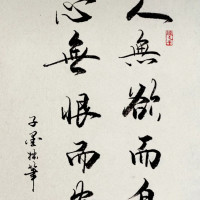 人無欲而自
心無恨而
子墨拙筆